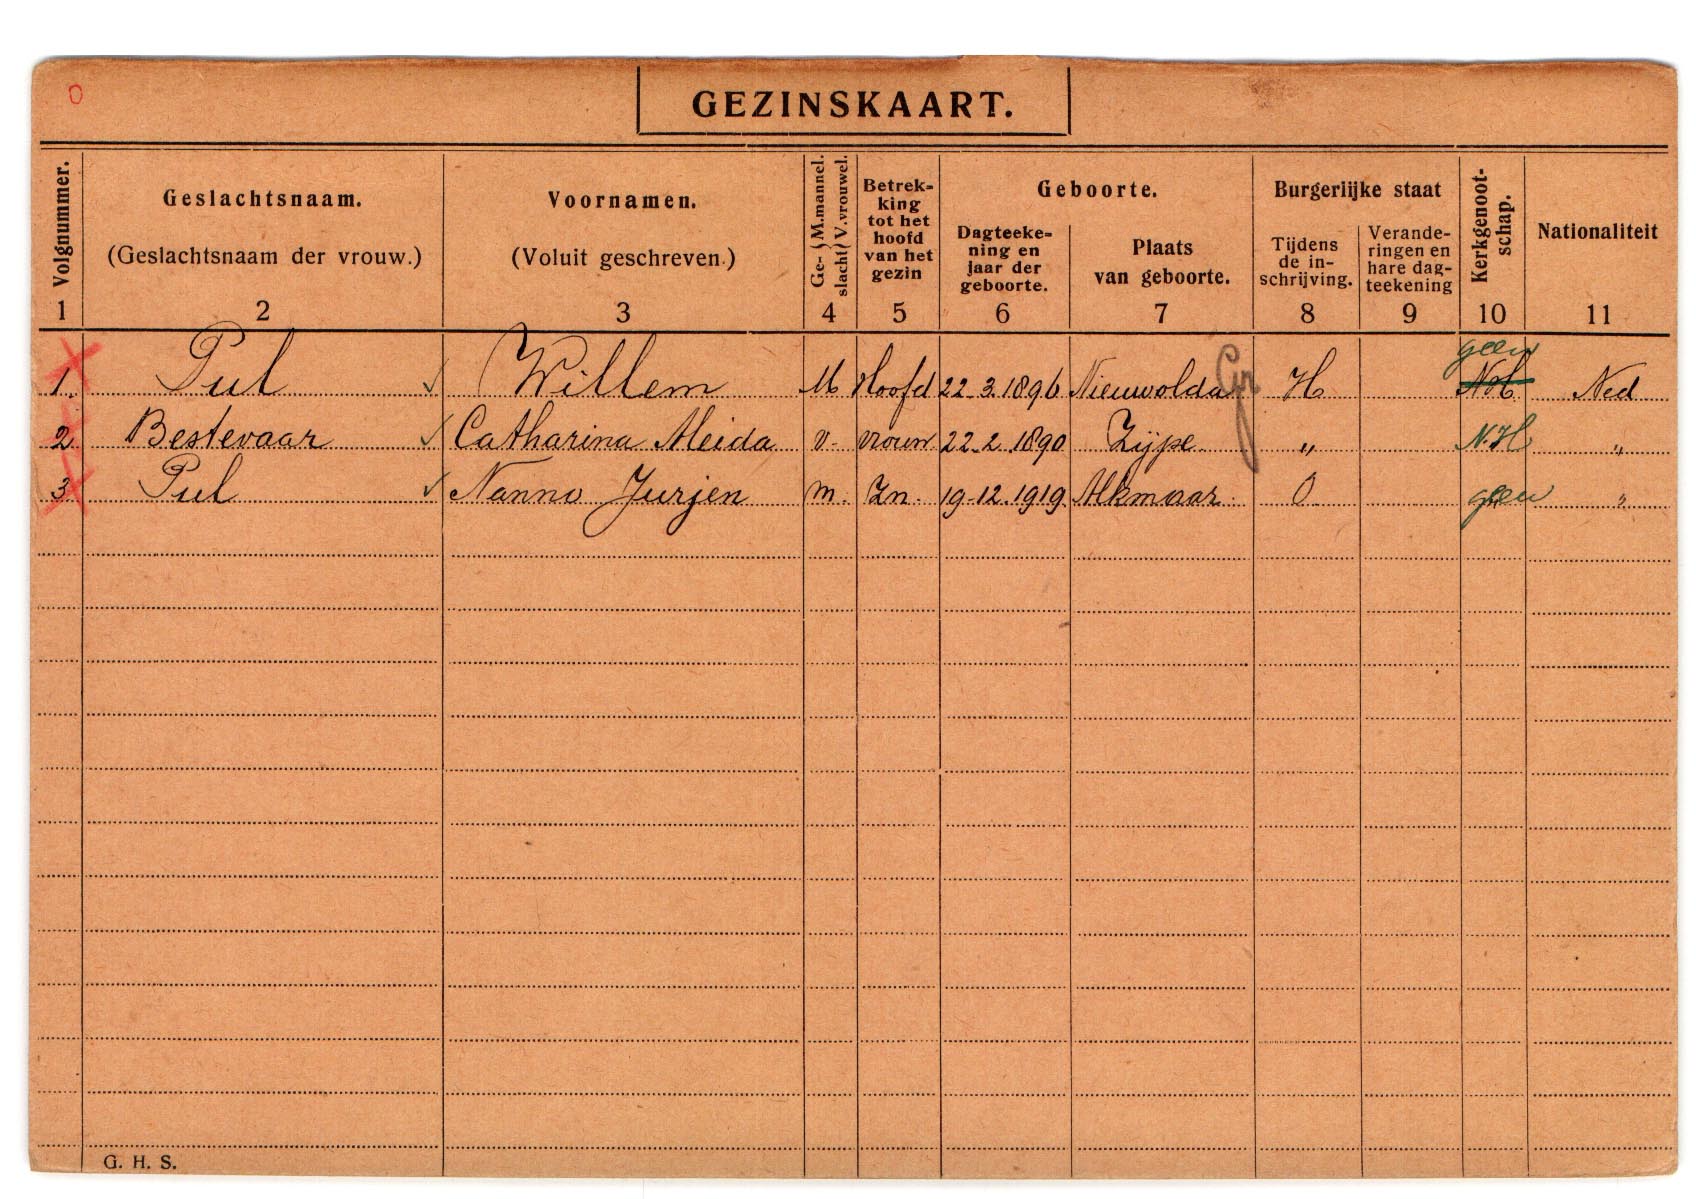 0
GEZINSKAART.
Volgnummer. Geslachtsnaam. (Geslachtsnaam der vrouw.) Voornamen. (Voluit geschreven.) Ge- slacht { M. mannel. V. vrouwel. Betrek- king tot het hoofd van het gezin Geboorte. Dagteeke- ning en jaar der geboorte. Plaats van geboorte. Burgerlijke staat Tijdens de in- schrijving. Verande- ringen en hare dag- teekening Kerkgenoot- schap. Nationaliteit
1 2 3 4 5 6 7 8 9 10 11
geen
1. Pul Willem M Hoofd 22-3.1896 Nieuwolda Gr H N.H. Ned
2 Bestevaar Catharina Aleida v. vrouw 22-2.1890 Zijpe „ N.H „
3 Pul Nanno Jurjen m. Zn. 19-12.1919. Alkmaar O geen „
G. H. S.